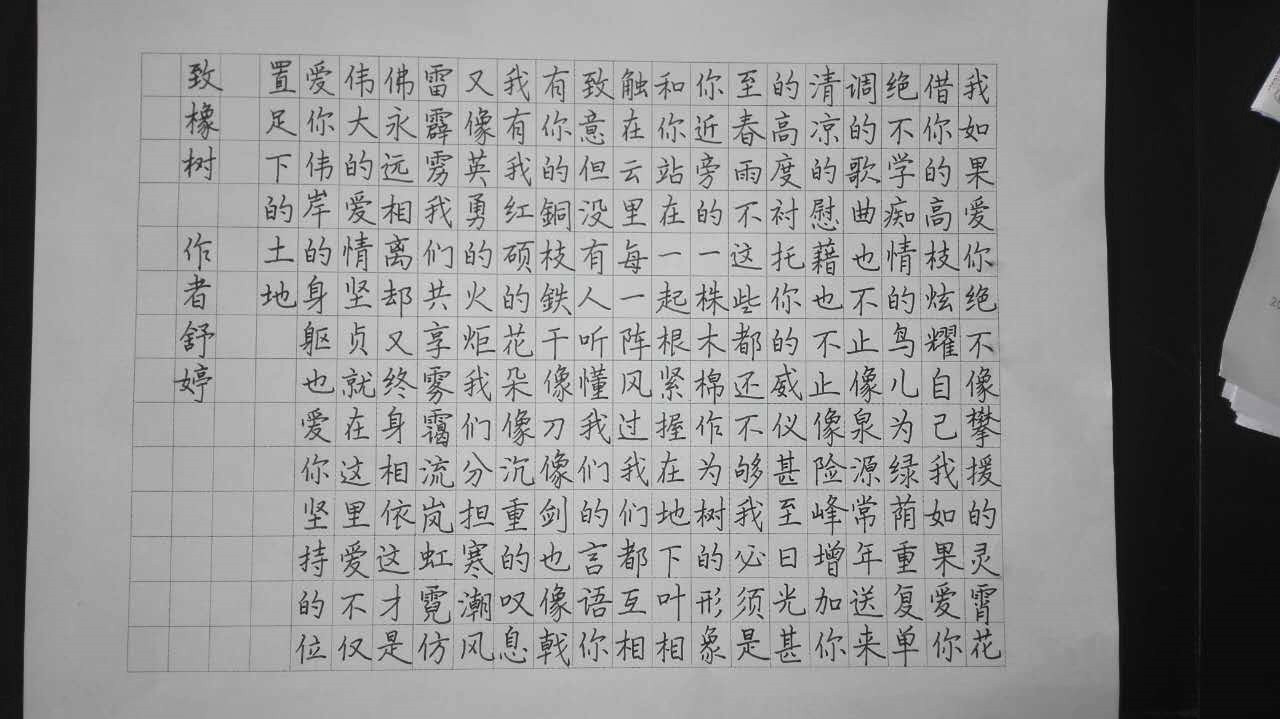 我如果爱你绝不像攀援的灵霄花
借你的高枝炫耀自己我如果爱你
绝不学痴情的鸟儿为绿荫重复单
调的歌曲也不止像泉源常年送来
清凉的慰藉也不止像险峰增加你
的高度衬托你的威仪甚至日光甚
至春雨不这些都还不够我必须是
你近旁的一株木棉作为树的形象
和你站在一起根紧握在地下叶相
触在云里每一阵风过我们都互相
致意但没有人听懂我们的言语你
有你的銅枝鉄干像刀像剑也像戟
我有我红硕的花朵像沉重的叹息
又像英勇的火炬我们分担寒潮风
雷霹雳我们共享雾霭流岚虹霓仿
佛永远相离却又终身相依这才是
伟大的爱情坚贞就在这里爱不仅
爱你伟岸的身躯也爱你坚持的位
置足下的土地
致橡树 作者舒婷